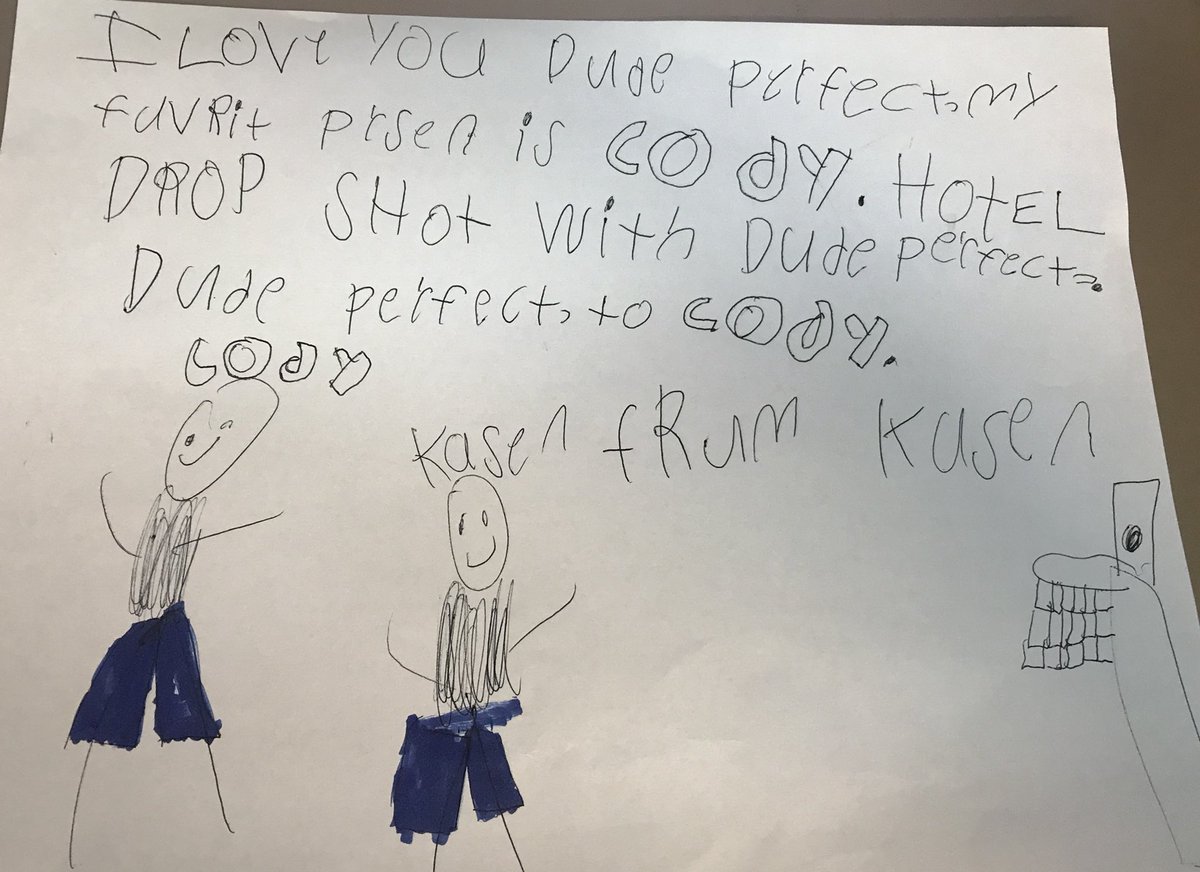 I LOVe YOU Dude perfect, my
favRit prsen is COdY. HOtEL
DROP SHOt With Dude perfect.
Dude perfect, to COdY.
COdY
Kasen fRum Kasen